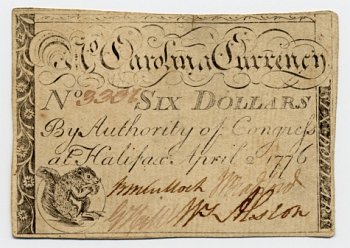 No Carolina Currency
No 3304 SIX DOLLARS
By Authority of Congress
at Halifax April 2d 1776